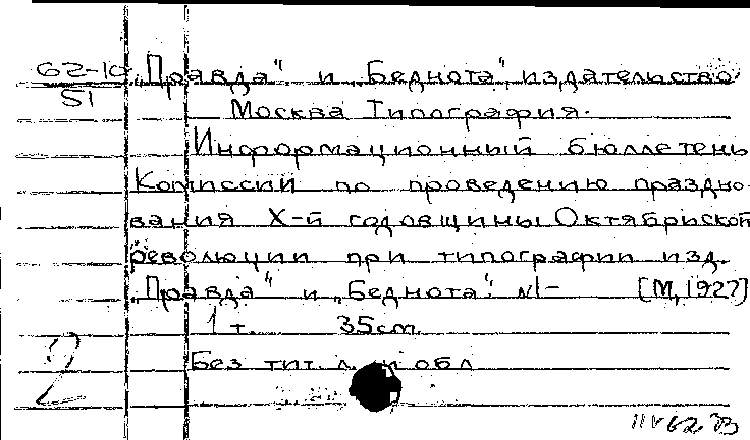 62-10
51
„Правда“ и „Беднота“, издательство
Москва Типография.
Информационный бюллетень
Комиссии по проведению праздно-
вания X-й годовщины Октябрьской
революции при типографии изд.
„Правда“ и „Беднота“. №1- [М, 1927]
1 т. 35см
Без тит. л. и обл
2